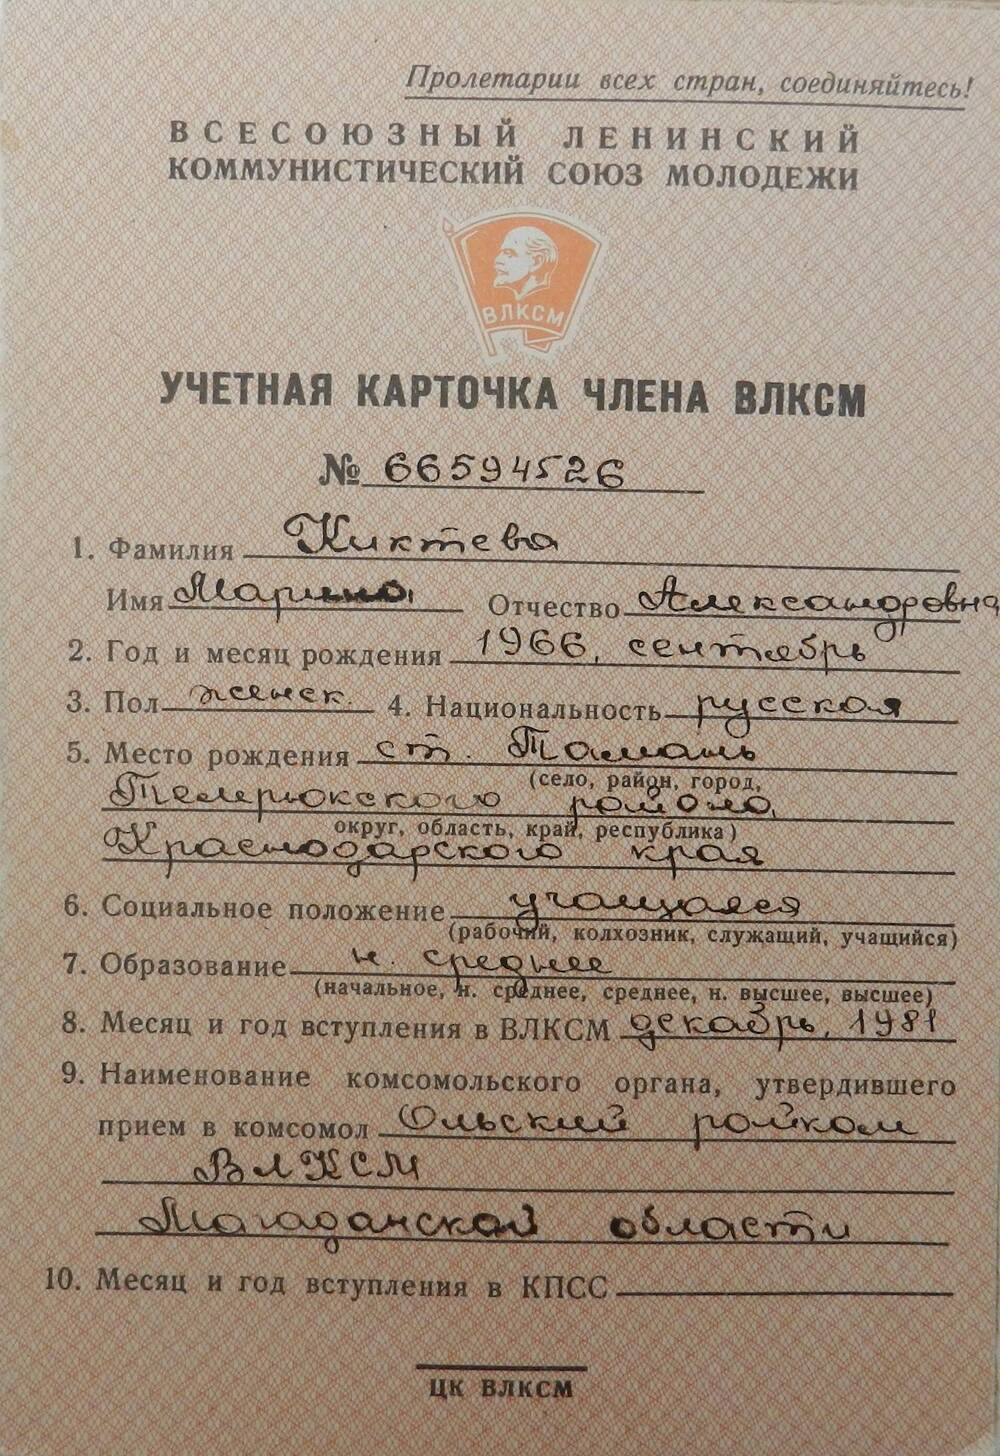 Пролетарии всех стран, соединяйтесь!
ВСЕСОЮЗНЫЙ ЛЕНИНСКИЙ
КОММУНИСТИЧЕСКИЙ СОЮЗ МОЛОДЕЖИ
ВЛКСМ
УЧЕТНАЯ КАРТОЧКА ЧЛЕНА ВЛКСМ
№ 66594526
1. Фамилия Киктева
Имя Марина Отчество Александровна
2. Год и месяц рождения 1966, сентябрь
3. Пол женск. 4. Национальность русская
5. Место рождения ст. Тамань
(село, район, город,
Темрюкского района,
округ, область, край, республика)
Краснодарского края
6. Социальное положение учащаяся
(рабочий, колхозник, служащий, учащийся)
7. Образование н. среднее
(начальное, н. среднее, среднее, н. высшее, высшее)
8. Месяц и год вступления в ВЛКСМ декабрь, 1981
9. Наименование комсомольского органа, утвердившего
прием в комсомол Ольский райком
ВЛКСМ
Магаданской области
10. Месяц и год вступления в КПСС
ЦК ВЛКСМ